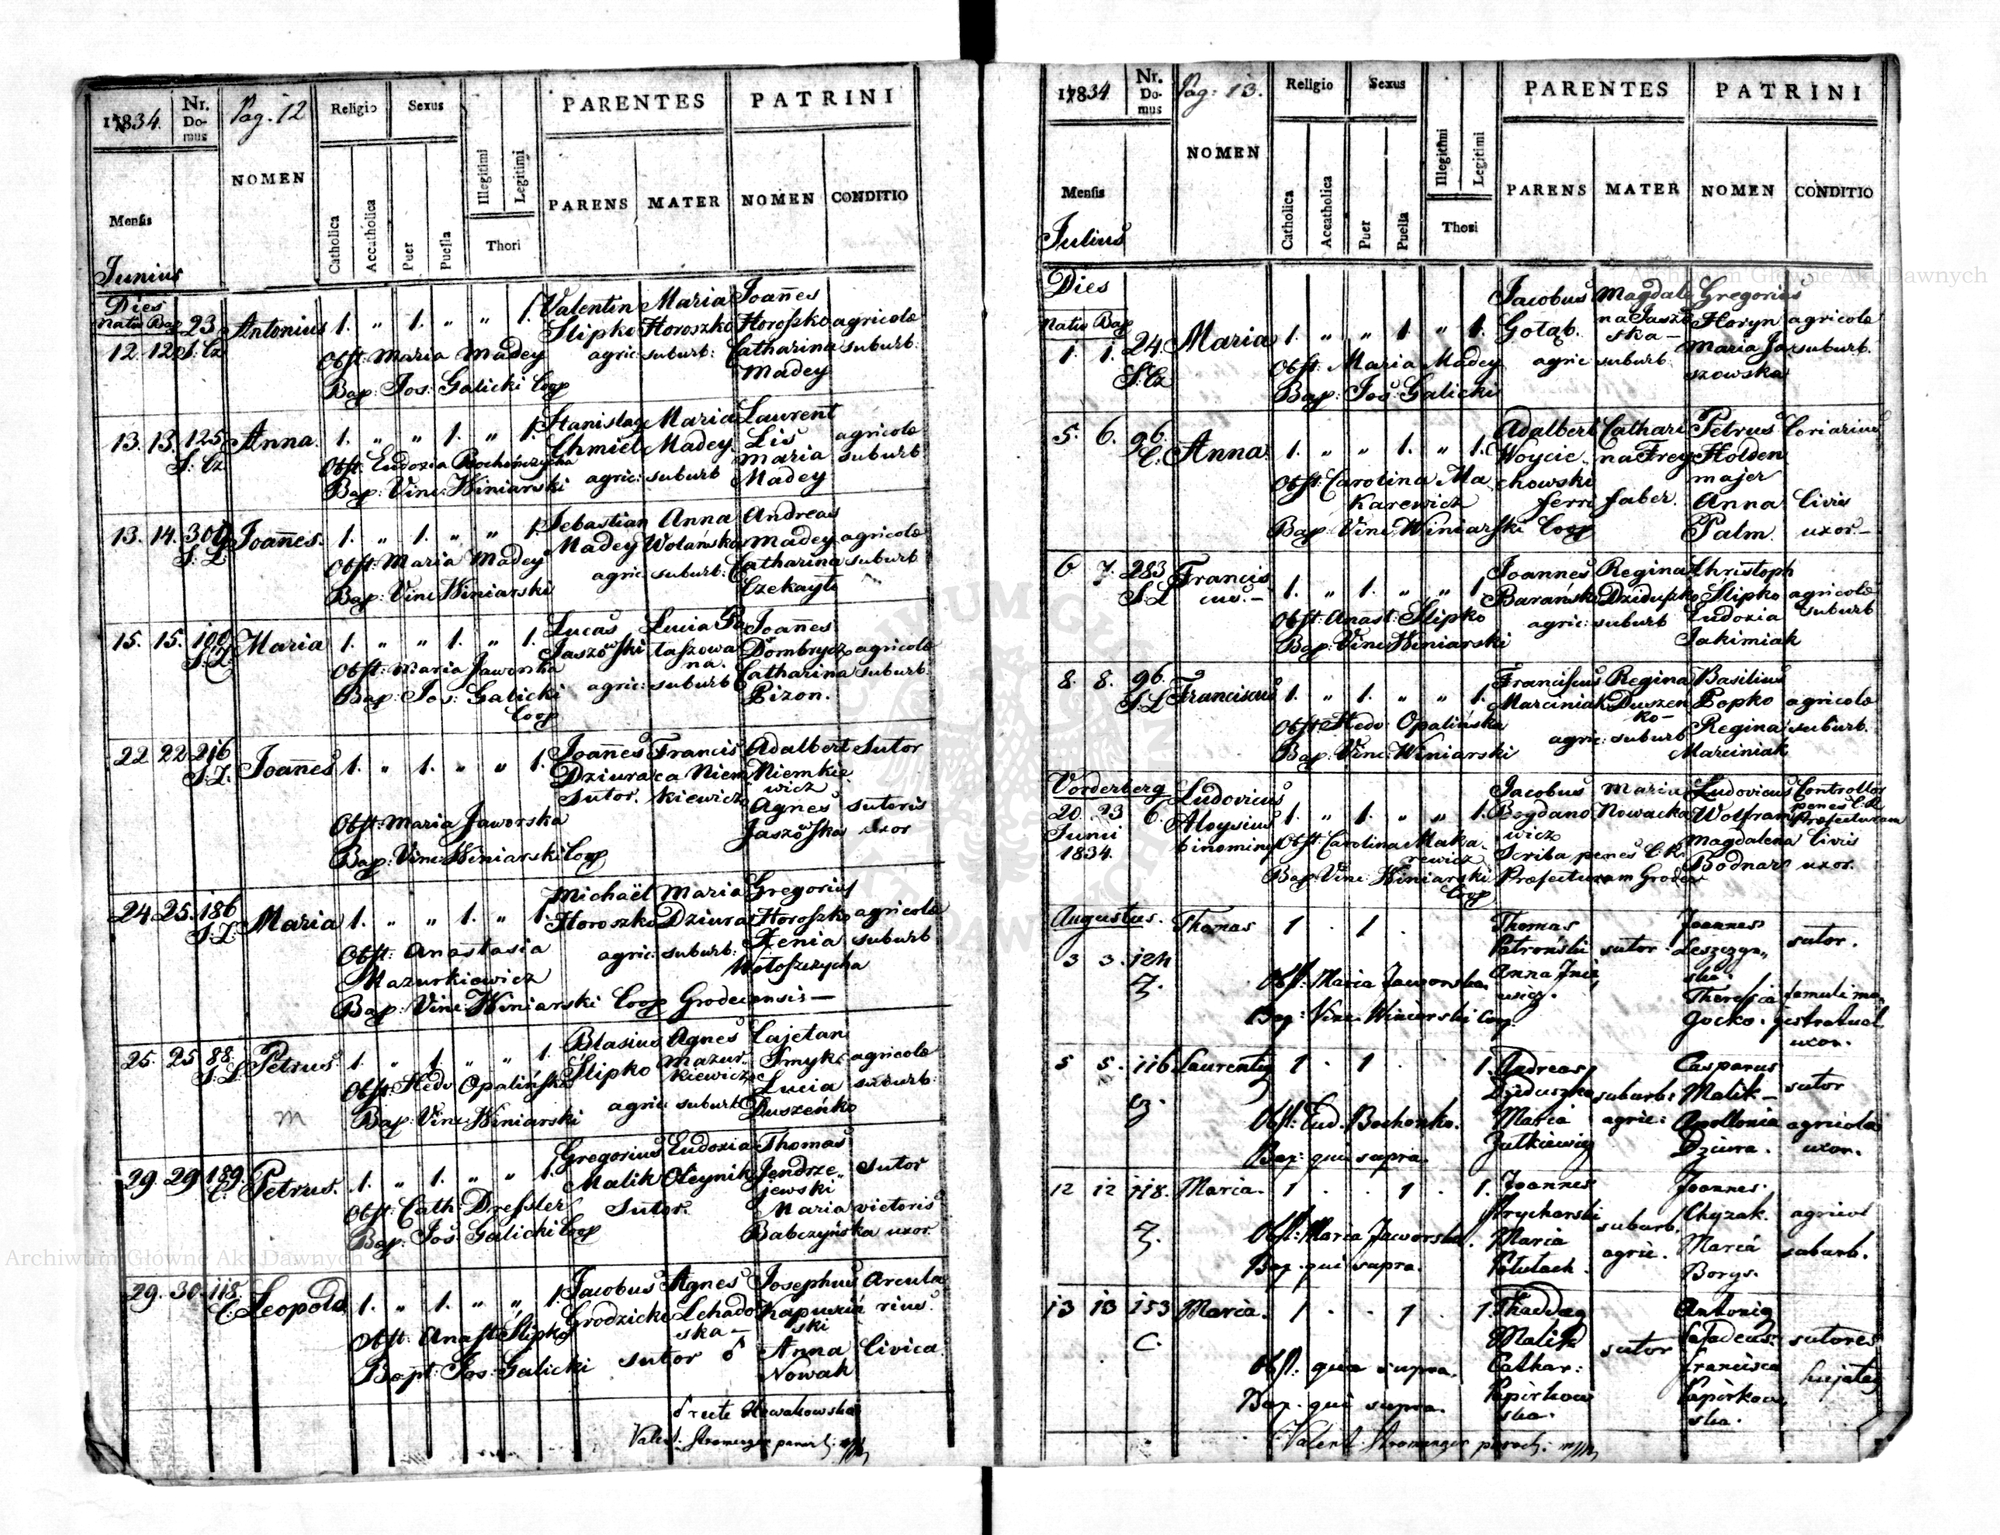 1834.
Nr. Domus
Pag. 12
NOMEN
Religio
Catholica
Accatholica
Sexus
Puer
Puella
Illegitimi
Legitimi
Thori
PARENTES
PARENS
MATER
PATRINI
NOMEN
CONDITIO
Mensis
Junius
Dies
Natus Bap
12. 12. 23 S. Cz Antonius 1. " 1. " " 1. Valentin Slipko Maria Horoszko Joañes Horoszko agricolæ
agric: suburb: Catharina Madey suburb:
Obst: Maria Madey
Bap: Jos: Galicki Coop
13. 13. 125. S: Cz Anna. 1. " " 1. " 1. Stanislag Chmiel Maria Madey. Laurent Lis agricolæ
agric: suburb Maria Madey suburb
Obst: Eudoxia
Bap: Vinc: Winiarski
13. 14. 309 S: L Joañes. 1. " 1. " " 1. Sebastian Madey Anna Wolańska Andreas Madey agricolæ
agric: suburb: Catharina suburb
Obst: Maria Madey
Bap: Vinc: Winiarski
15. 15. 109 S: L Maria 1. " " 1. " 1. Lucas Jaszowski Lucia Joañes agricolæ
agric: suburb Catharina Pizon. suburb:
Obst: Maria Jaworska
Bap: Jos: Galicki
Coop
22 22 216 S: Z: Joañes 1. " 1. " " 1. Joañes Dziura Sutor. Francisca Niemkiewicz Adalbert Niemkiewicz Sutor
Agnes Jaszowska sutoris uxor
Obst: Maria Jaworska
Bap: Vinc: Winiarski Coop
24. 25. 186 S: Z: Maria 1. " " 1. " 1. Michaël Horoszko Maria Dziura Gregorius Horoszko agricolæ
agric: suburb: Xenia Wołoszczycha suburb
Obst: Anastasia
Mazurkiewicz
Bap: Vinc: Winiarski Coop Grodecensis —
25. 25 88. S: L: Petrus 1. " 1. " " 1. Blasius Slipko Agnes Mazurkiewicz Cajetan Smyk agricolæ
agric: suburb Lucia Duszeńko suburb:
Obst: Hedv: Opalińska
Bap: Vinc: Winiarski
m
29. 29 189. C: Petrus. 1. " 1. " " 1. Gregorius Malik Eudoxia Oleynik Thomas Jendrzejewski Sutor
Sutor. Maria Babczyńska uxor
Obst: Cath: Dressler
Bap: Jos: Galicki Coop
29. 30. 118. C: Leopold. 1. " 1. " " 1. Jacobus Grodzicki Agnes Josephus Arcularius.
sutor Anna Nowak Civica.
Obst: Anast: Slipko
Bapt: Jos: Galicki
recte Nowakowska
Valent: Stromenger paroch: mpp
1834
Nr. Domus
Pag: 13.
NOMEN
Religio
Catholica
Accatholica
Sexus
Puer
Puella
Illegitimi
Legitimi
Thori
PARENTES
PARENS
MATER
PATRINI
NOMEN
CONDITIO
Mensis
Julius
Dies
Natus Bap
1. 1. 24. S: Cz Maria 1. " " 1. " 1. Jacobus Gołąb. Magdalena Jaszowska — Gregorius Horyn agricolæ
agric suburb. Maria Jaszowska suburb.
Obst: Maria Madey
Bap: Jos: Galicki
5. 6. 96. C: Anna 1. " " 1. " 1. Adalbert Woyciechowski Catharina Frey Petrus Holdenmajer Coriarius
ferri faber. Anna Palm. Civis uxor —
Obst: Carolina Makarewicz
Bap: Vinc: Winiarski Coop
6 7. 283 S: L Franciscus. — 1. " 1. " " 1. Joannes Baranski Regina Dziduszko Christoph Slipko agricolæ
agric: suburb Eudoxia Jakimiak suburb
Obst: Anast: Slipko
Bap: Vinc: Winiarski
8. 8. 96. S: L Franciscus 1. " 1. " " 1. Franciscus Marciniak Regina Duszenko — Basilius Popko agricolæ
agric: suburb Regina Marciniak suburb.
Obst: Hedv: Opalińska
Bap: Vinc: Winiarski
Vorderberg
20. 23 Junii 1834. C. Ludovicus Aloysius binominis 1. " 1. " " 1. Jacobus Bogdanowicz Maria Nowacka Ludovicus Wolfram Controllor penes C: R: Præfecturam
Scriba penes C: R: Præfecturam Grodec Magdalena Bodnar Civis uxor.
Obst: Carolina Makarewicz
Bap: Vinc: Winiarski
Coop
Augustus.
3 3. 124 Z. Thomas 1 . 1 . Thomas Petronski sutor. Joannes Leszczynski sutor.
Anna Theresia Gocko. famuli magistratual uxor.
Obst: Maria Jaworska
Bap: Vinc: Winiarski Coop.
5 5. 116 Cz. Laurentius 1 . 1 . 1. Andreas Dziduszko suburb: Casparus Malik — sutor
Maria Jutkiewicz agric: Apollonia Dziura. agricolæ uxor.
Obst: Eud. Bochenko.
Bap: qui supra.
12 12 118. Z. Maria. 1 . . 1 . 1. Joannes Prycharski suburb. Joannes Chyzak. agricol
Maria agric. Maria Borys. suburb.
Obst: Maria Jaworska.
Bap. qui supra.
13 13 153 C. Maria. 1 . . 1 1. Thadæg Malik sutor Antonig sutores
Cathar: Papirkowska. Francisca Papirkowska. hujates
Obst: qua supra.
Bap. qui supra.
Valent: Stromenger paroch: mpp
Archiwum Główne Akt Dawnych
Archiwum Główne Akt Dawnych
ARCHIWUM GŁÓWNE AKT DAWNYCH